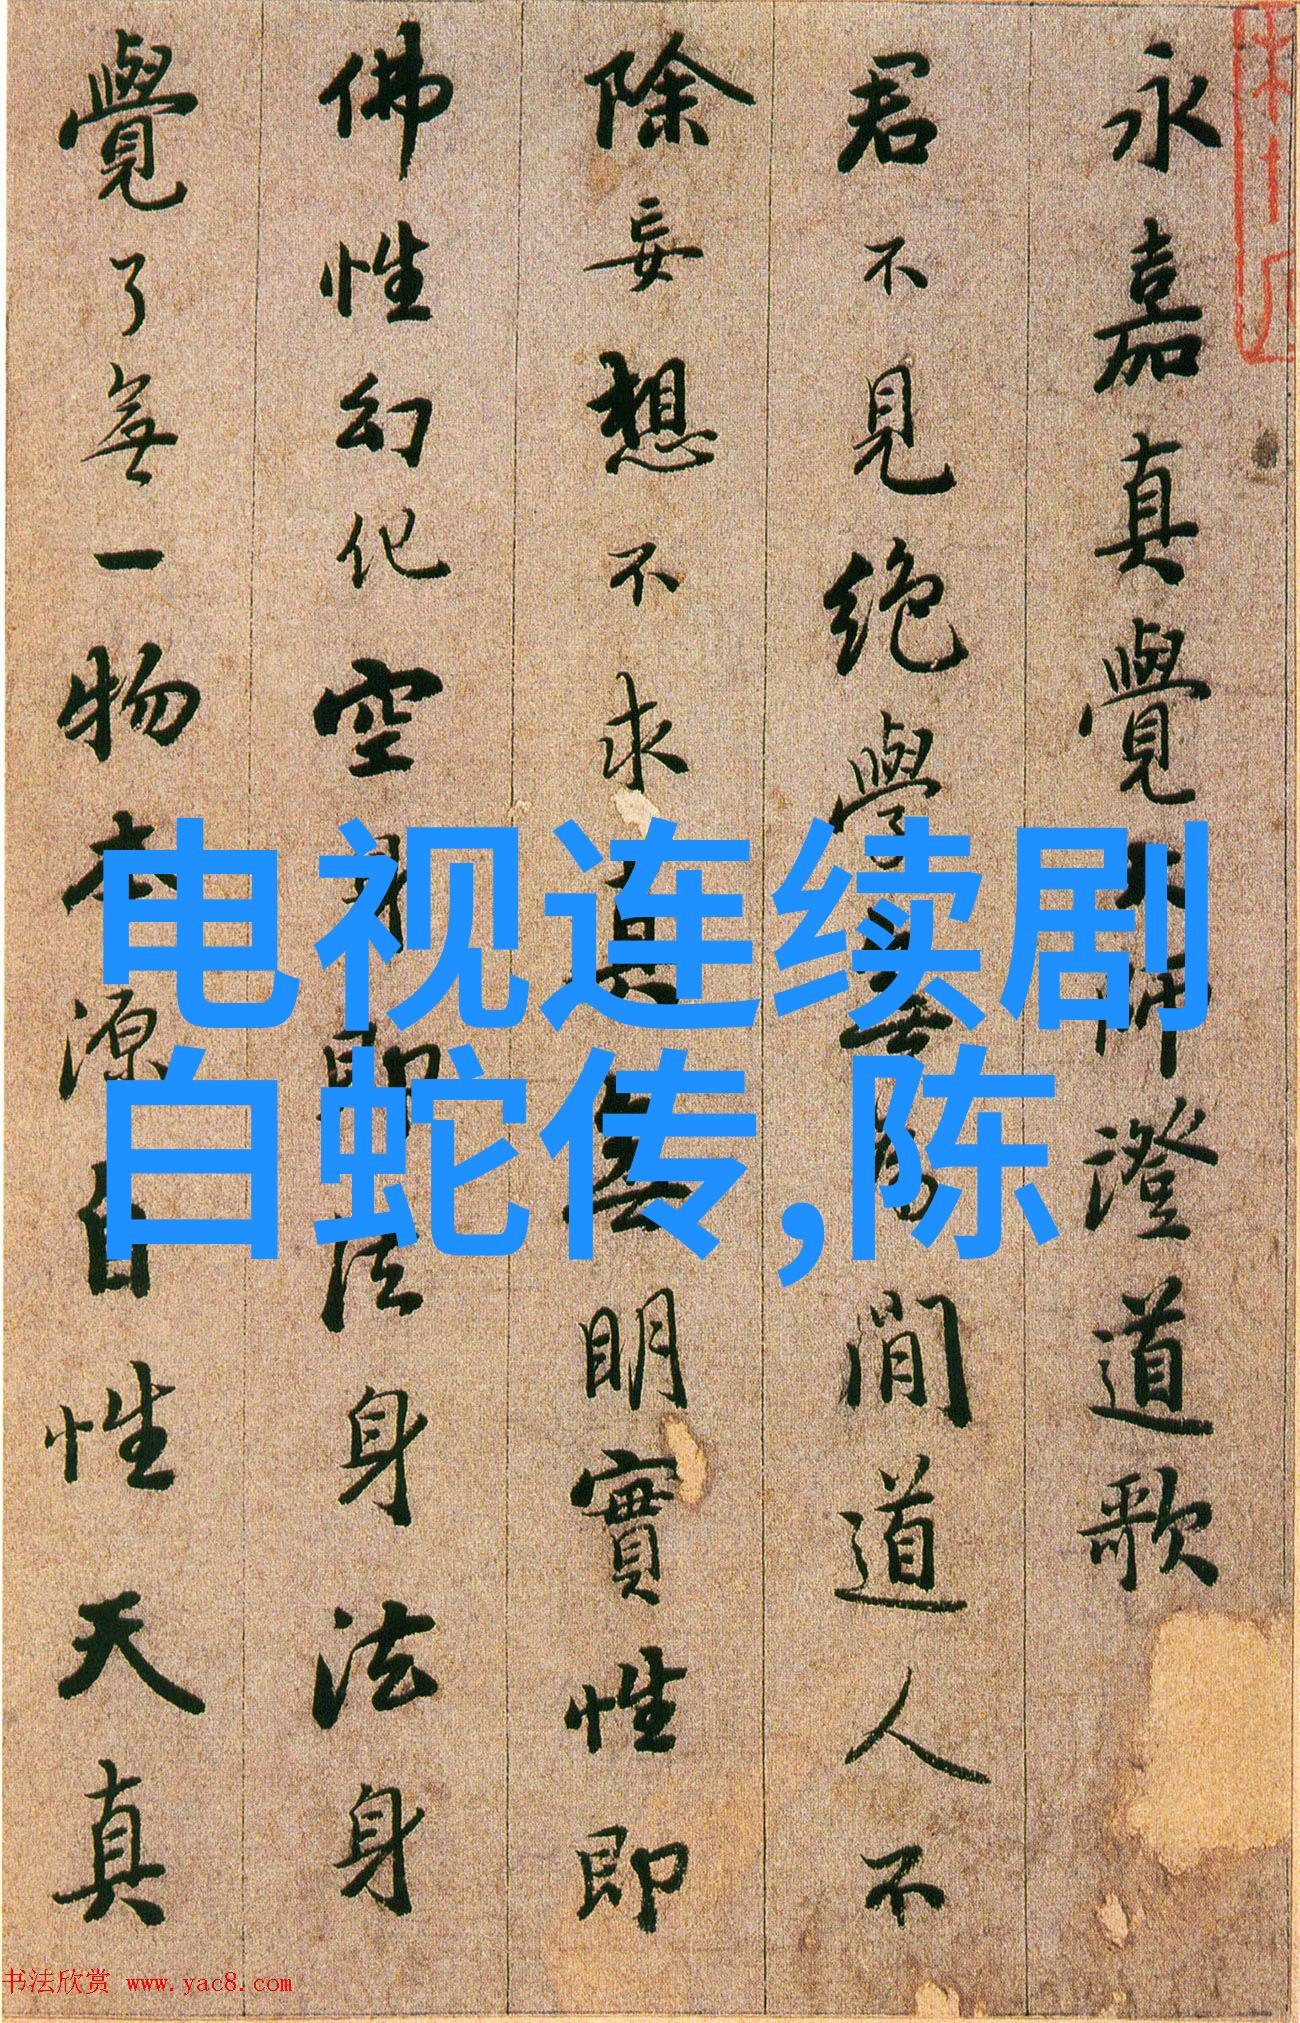 永嘉真覺大師澄道歌
君不見絶學無爲閒道人不
除妄想不求真無明實性即
佛性幻化空身即法身法身
覺了無一物本源自性天真
电视连续剧
白蛇传,陈
书法欣赏 www.yac8.com